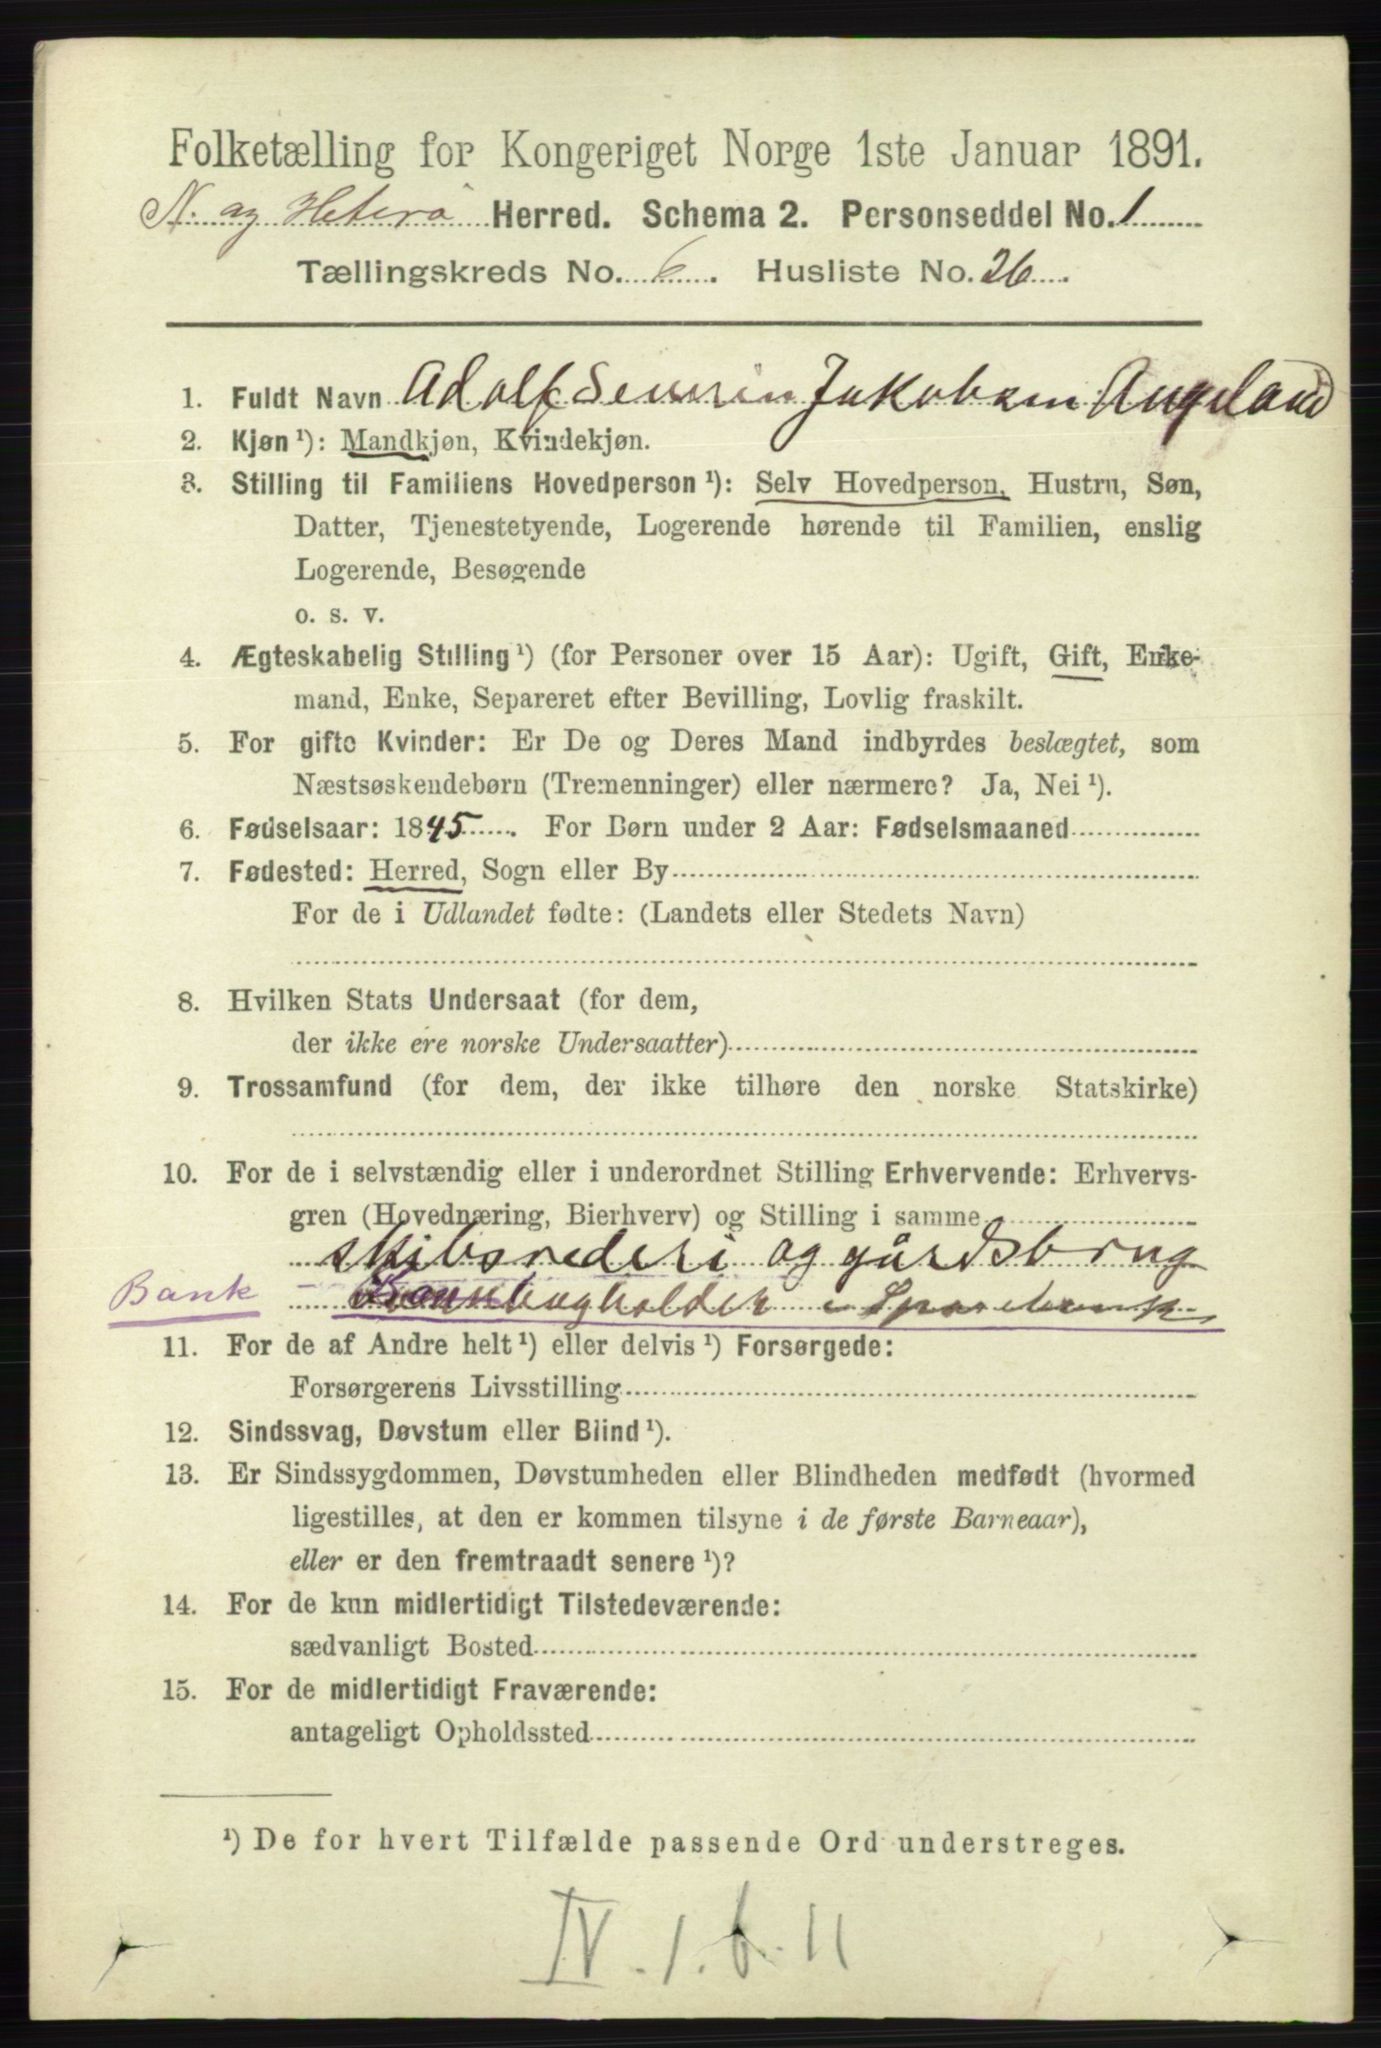 Folketælling for Kongeriget Norge 1ste Januar 1891.
N. og Heterø Herred. Schema 2. Personseddel No. 1
Tællingskreds No. 6. Husliste No. 26.
1. Fuldt Navn Adolf Severin Jakobsen Angeland
2. Kjøn ¹): Mandkjøn, Kvindekjøn.
3. Stilling til Familiens Hovedperson ¹): Selv Hovedperson, Hustru, Søn,
Datter, Tjenestetyende, Logerende hørende til Familien, enslig
Logerende, Besøgende
o. s. v.
4. Ægteskabelig Stilling ¹) (for Personer over 15 Aar): Ugift, Gift, Enke-
mand, Enke, Separeret efter Bevilling, Lovlig fraskilt.
5. For gifte Kvinder: Er De og Deres Mand indbyrdes beslægtet, som
Næstsøskendebørn (Tremenninger) eller nærmere? Ja, Nei ¹).
6. Fødselsaar: 1845. For Børn under 2 Aar: Fødselsmaaned
7. Fødested: Herred, Sogn eller By
For de i Udlandet fødte: (Landets eller Stedets Navn)
8. Hvilken Stats Undersaat (for dem,
der ikke ere norske Undersaatter)
9. Trossamfund (for dem, der ikke tilhøre den norske Statskirke)
10. For de i selvstændig eller i underordnet Stilling Erhvervende: Erhvervs-
gren (Hovednæring, Bierhverv) og Stilling i samme
skibsrederi og gårdsbrug
Bank - bogholder i Sparebank
11. For de af Andre helt ¹) eller delvis ¹) Forsørgede:
Forsørgerens Livsstilling
12. Sindssvag, Døvstum eller Blind ¹).
13. Er Sindssygdommen, Døvstumheden eller Blindheden medfødt (hvormed
ligestilles, at den er kommen tilsyne i de første Barneaar),
eller er den fremtraadt senere ¹)?
14. For de kun midlertidigt Tilstedeværende:
sædvanligt Bosted
15. For de midlertidigt Fraværende:
antageligt Opholdssted
¹) De for hvert Tilfælde passende Ord understreges.
IV. 1. 6. 11